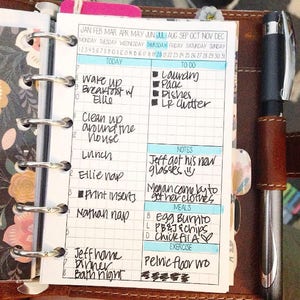 JAN FEB MAR APR MAY JUN JUL AUG SEP OCT NOV DEC
MONDAY TUESDAY WEDNESDAY THURSDAY FRIDAY SATURDAY SUNDAY
TODAY
Wake up
Breakfast w/
Ellie
Clean up
around the
house
Lunch
Ellie nap
Print inserts
Nathan nap
Jeff home
Dinner
Bath night
TO DO
Laundry
Pack
Dishes
LR clutter
NOTES
Jeff got his new
glasses
Megan came by to
get her clothes
MEALS
B Egg Burrito
L PB&J & chips
D Chick fil A ♡
EXERCISE
Pelvic floor wo